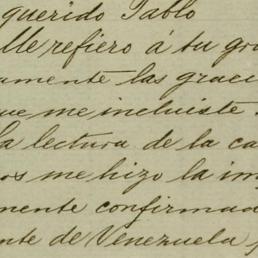 querido Pablo
Me refiero á tu gra
amente las graci
que me incluiste
La lectura de la ca
os me hizo la im
mente confirmad
nte de Venezuela,